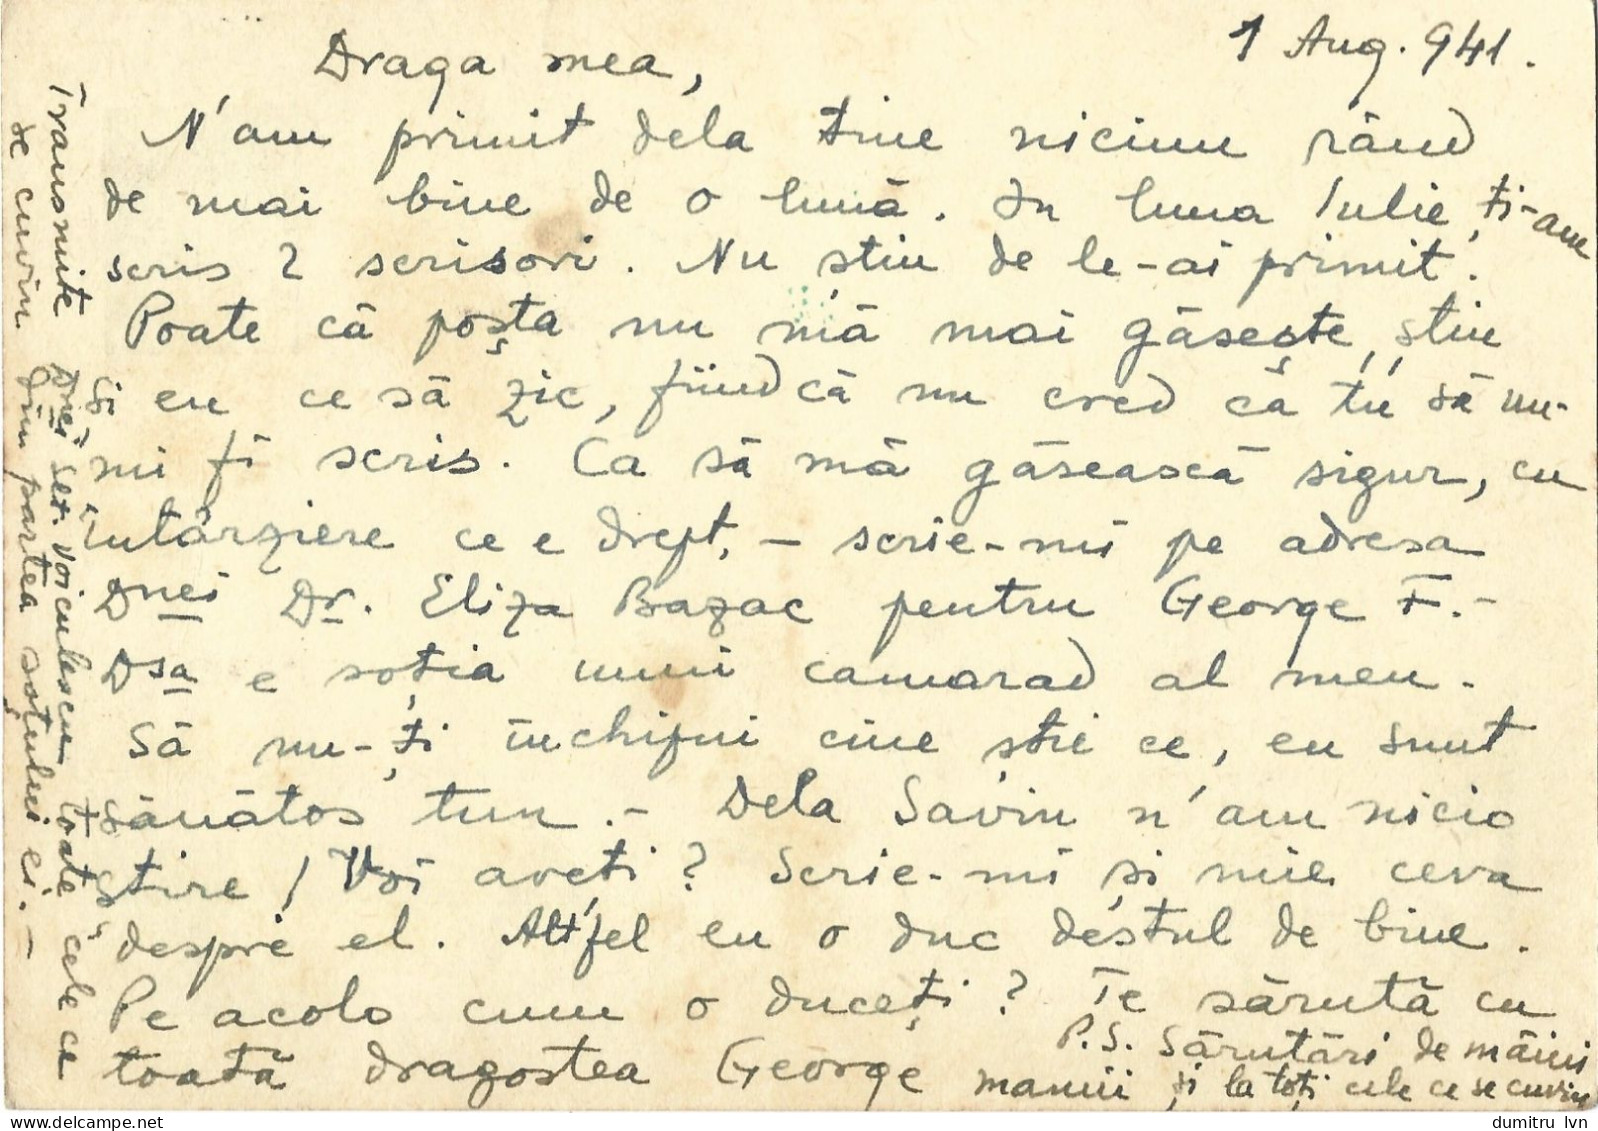 1 Aug. 941.
Draga mea,
N'am primit dela tine niciun rând
de mai bine de o lună. In luna Iulie ți-am
scris 2 scrisori. Nu știu de le-ai primit.
Poate că poșta nu mă mai găsește, știu
și eu ce să zic, fiindcă nu cred că tu să nu-
mi fi scris. Ca să mă găsească sigur, cu
întârziere ce e drept, – scrie-mi pe adresa
Dnei Dr. Eliza Bazac pentru George F.-
Dsa e soția unui camarad al meu.
Să nu-ți închipui cine știe ce, eu sunt
sănătos tun.- Dela Savin n'am nicio
știre! Voi aveți? Scrie-mi și mie ceva
despre el. Altfel eu o duc destul de bine.
Pe acolo cum o duceți? Te sărută cu
toată dragostea George
P.S. Sărutări de mâini
mamii și la toți cele ce se cuvin
Transmite Dnei Voiculescu toate cele ce
se cuvin din partea soțului ei.-
dumitru_lvn